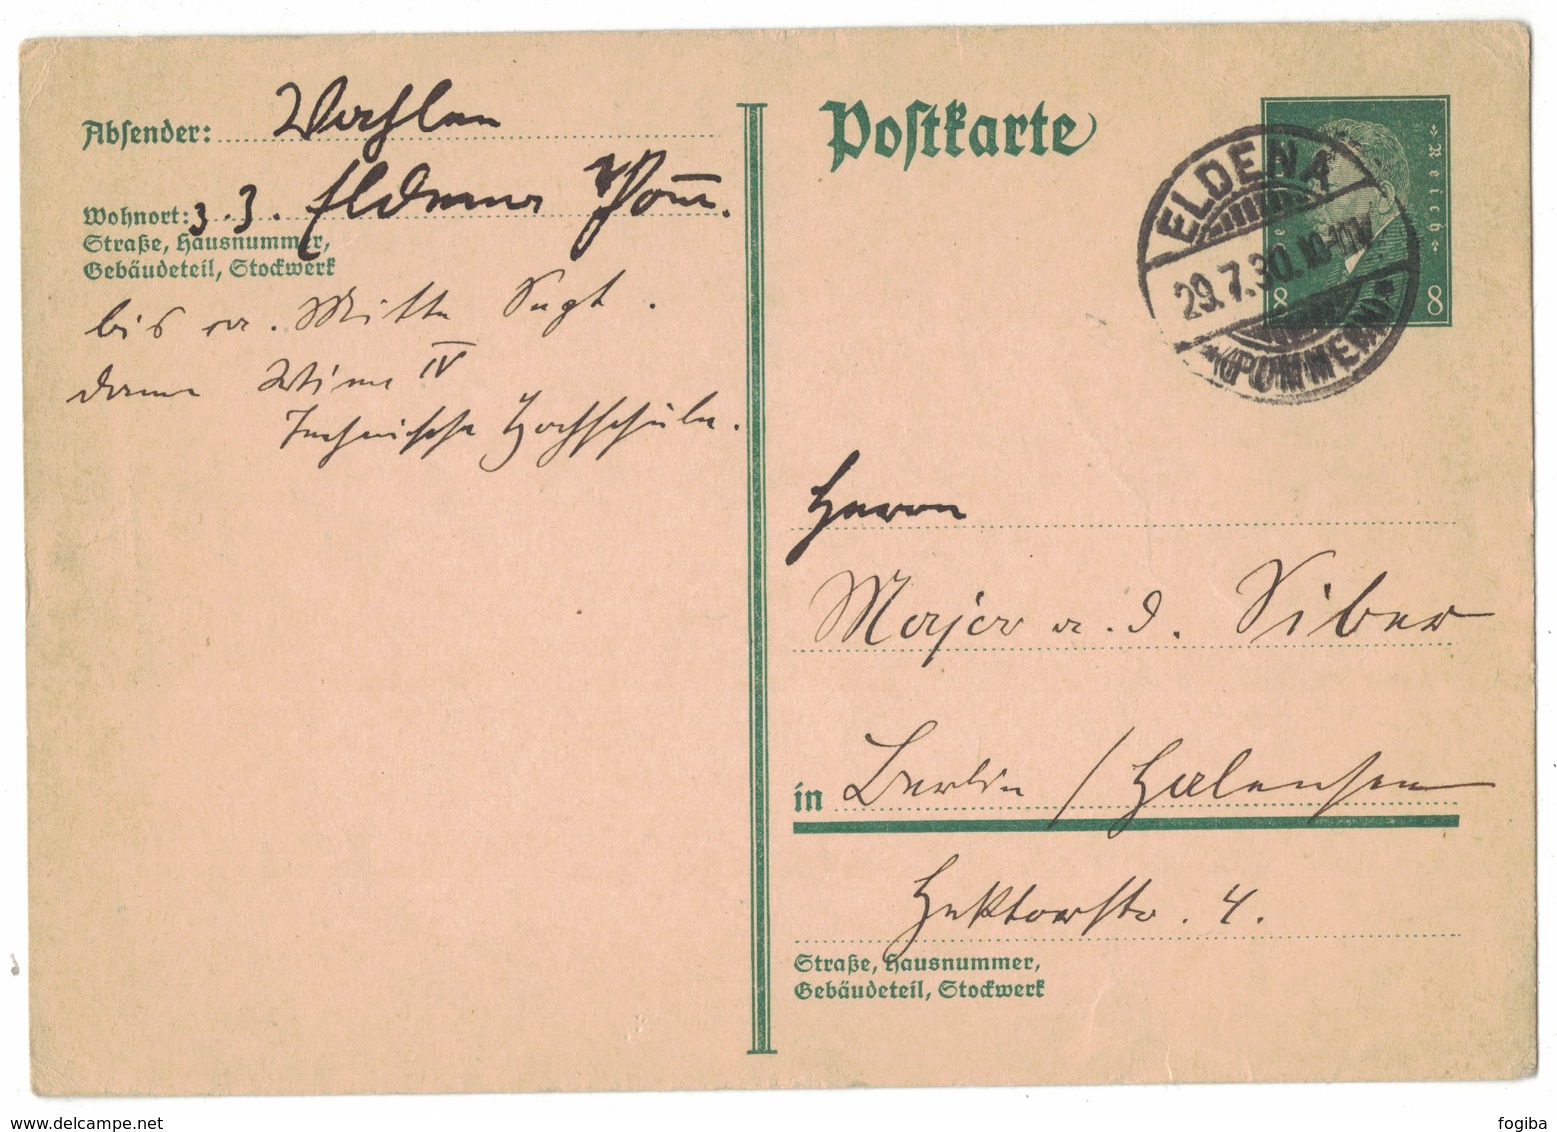 Absender: Wohlen
Wohnort: z. Z. Eldena Pom̅.
Straße, Hausnummer,
Gebäudeteil, Stockwerk
bis ca. Mitte Sept.
dann Wien IV
Technische Hochschule.
Postkarte
Reich
8 8
ELDENA
29.7.30.10-11V
*(POMMERN)*
Herrn
Major a. d. Siber
in Berlin / Halensee
Hektorstr. 4.
Straße, Hausnummer,
Gebäudeteil, Stockwerk
www.delcampe.net
fogiba